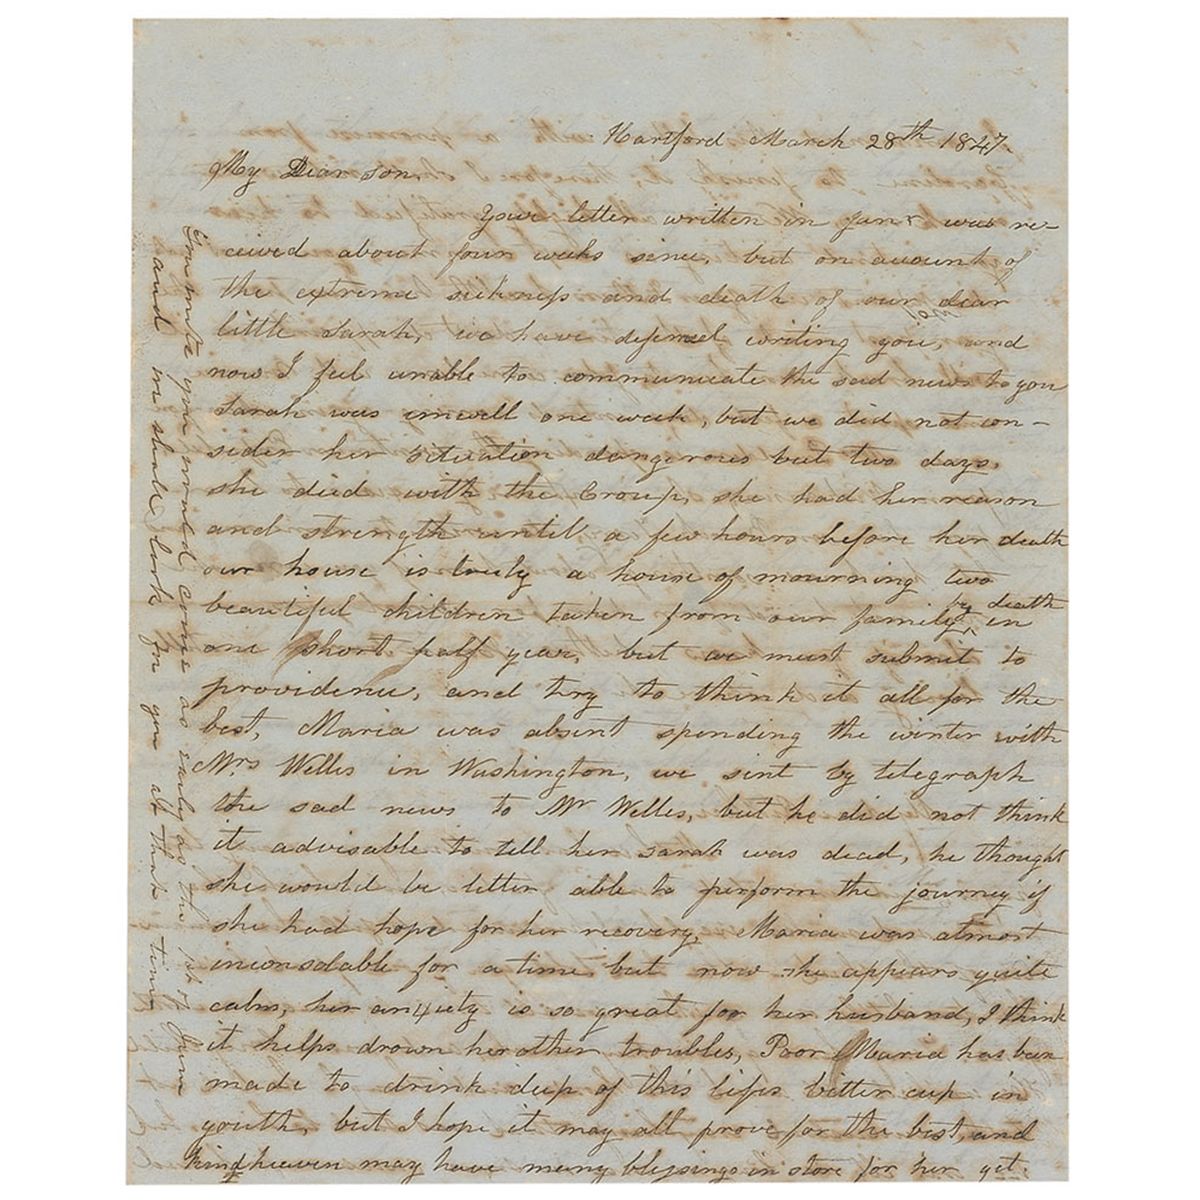 Hartford March 28th 1847.
My Dear son,
Your letter written in Janr was re-
ceived about four weeks since, but on account of
the extreme sickness and death of our dear
little Sarah, we have defered writing you, and
now I feel unable to communicate the sad news to you
Sarah was unwell one week, but we did not con-
sider her situation dangerous but two days.
she died with the Croup, she had her reason
and strength until a few hours before her death
our house is truly a house of mourning two
beautiful children taken from our family by death in
one short half year, but we must submit to
providence, and try to think it all for the
best, Maria was absent spending the winter with
Mrs Welles in Washington, we sent by telegraph
the sad news to Mr Welles, but he did not think
it advisable to tell her Sarah was dead, he thought
she would be better able to perform the journey if
she had hope for her recovery, Maria was almost
inconsolable for a time but now she appears quite
calm, her anxiety is so great for her husband, I think
it helps drown her other troubles, Poor Maria has been
made to drink deep of this lifes bitter cup in
youth, but I hope it may all prove for the best, and
kind heaven may have many blessings in store for her yet.
You write you would come as early as the 1st of June
and we shall look for you at that time